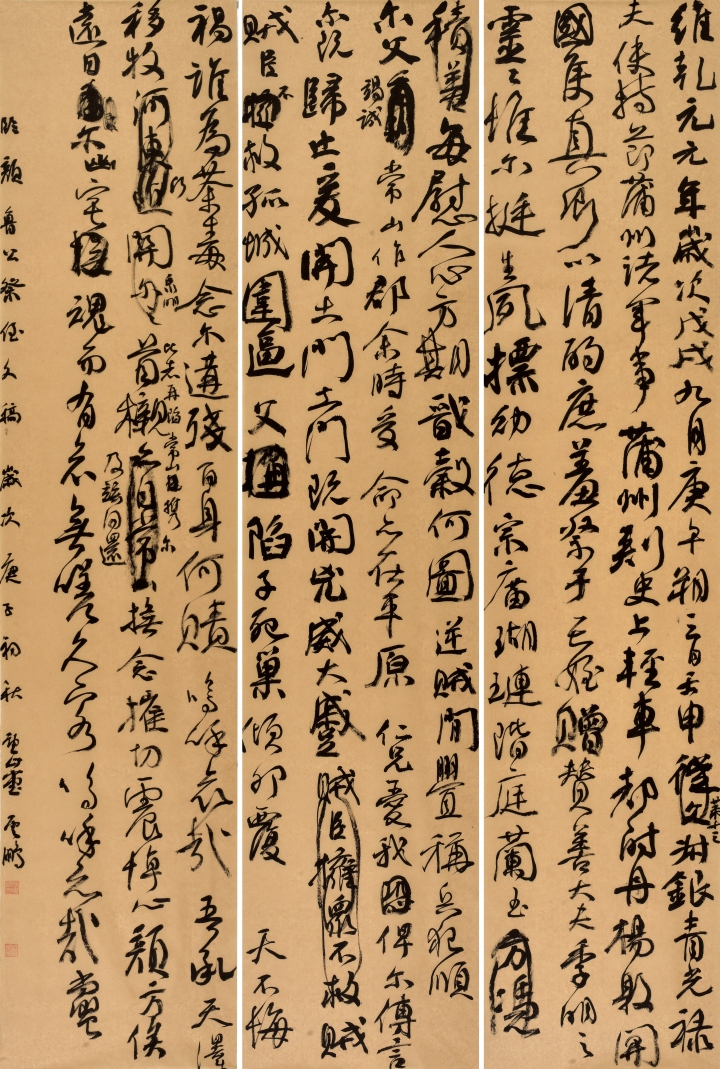 維乾元元年歲次戊戌九月庚午朔三日壬申從父第十三叔銀青光祿
夫使持節蒲州諸軍事蒲州刺史上輕車都尉丹楊縣開
國侯真卿以清酌庶羞祭于亡姪贈贊善大夫季明之
靈惟尔挺生夙標幼德宗廟瑚璉階庭蘭玉方憑
積善每慰人心方期戩穀何圖逆賊閒釁稱兵犯順
尔父竭誠常山作郡余時受命亦在平原仁兄愛我俾尔傳言
尔既歸止爰開土門土門既開凶威大蹙賊臣擁眾不救賊
賊臣不救孤城圍逼父陷子死巢傾卵覆天不悔
禍誰為荼毒念尔遘殘百身何贖嗚呼哀哉吾承天澤
移牧河關泉明比者再陷常山攜尔首櫬及茲同還撫念摧切震悼心顏方俟
遠日尔幽宅魂而有知無嗟久客嗚呼哀哉尚饗
臨顏魯公祭侄文稿歲次庚子初秋鵬